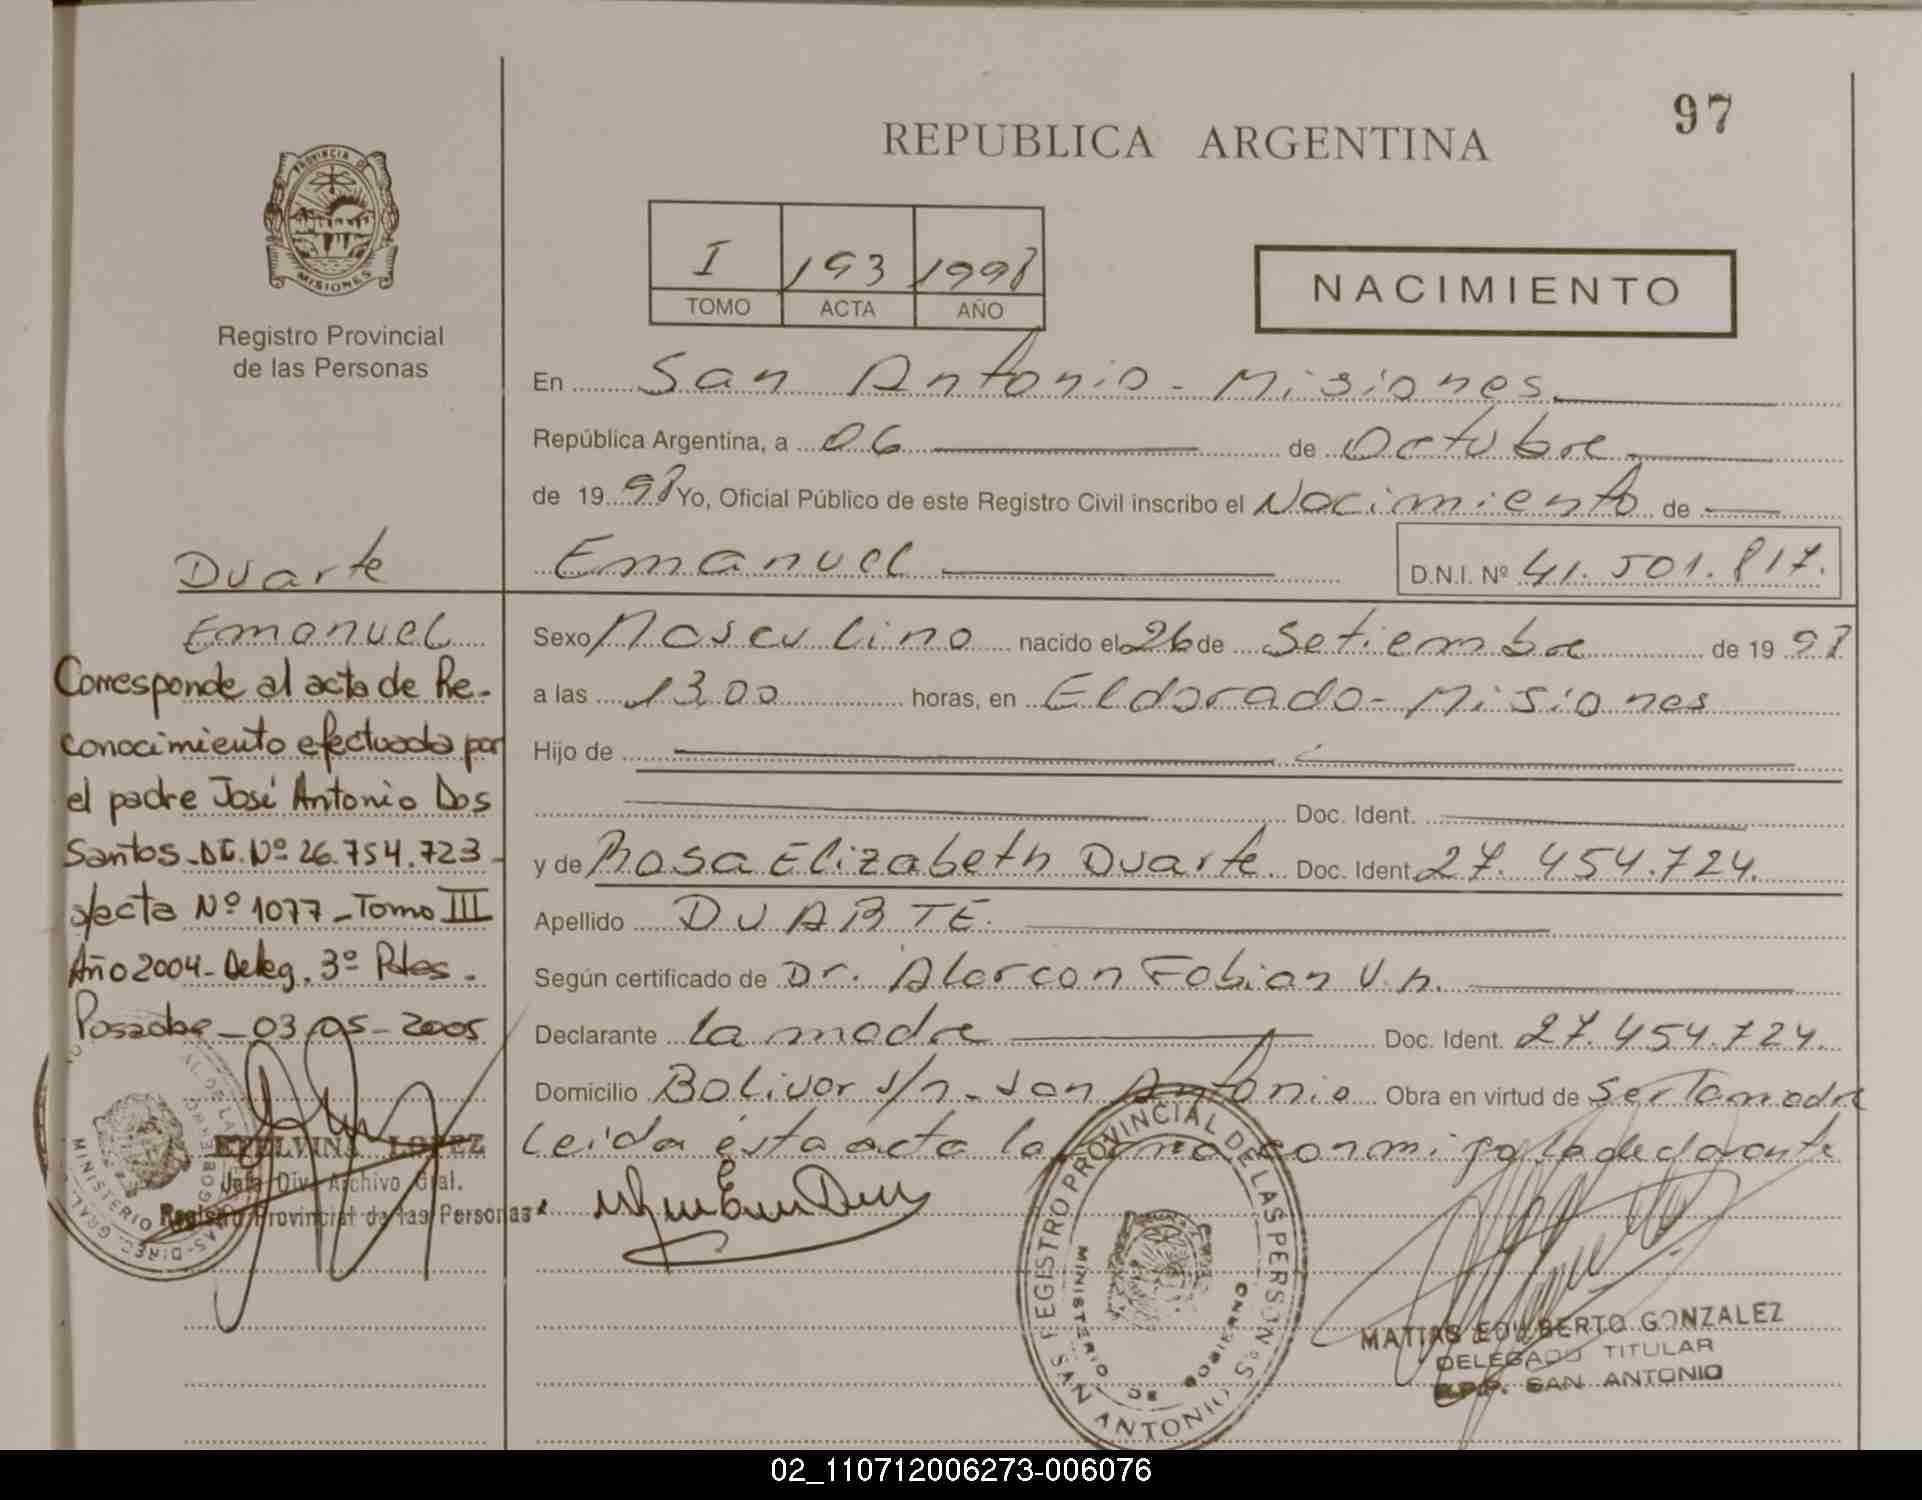 97
REPUBLICA ARGENTINA
PROVINCIA DE
MISIONES
Registro Provincial
de las Personas
I 193 1998
TOMO ACTA AÑO
NACIMIENTO
En San Antonio - Misiones
República Argentina, a 06 de Octubre
de 1998 Yo, Oficial Público de este Registro Civil inscribo el Nacimiento de
Emanuel D.N.I. Nº 41.501.817.
Sexo Masculino nacido el 26 de Setiembre de 1998
a las 13.00 horas, en Eldorado - Misiones
Hijo de
Doc. Ident.
y de Rosa Elizabeth Duarte Doc. Ident. 27.454.724.
Apellido DUARTE
Según certificado de Dr. Alarcon Fabian V.n.
Declarante La madre Doc. Ident. 27.454.724.
Domicilio Bolivar s/n - San Antonio Obra en virtud de Ser la madre
Leida ésta acta la firma conmigo la declarante
Duarte
Emanuel
Corresponde al acta de Re-
conocimiento efectuada por
el padre José Antonio Dos
Santos - DI. Nº 26.754.723 -
s/acta Nº 1077 - Tomo III
Año 2004 - Deleg. 3º Pdas -
Posadas - 03-05-2005
ETELVINA LOPEZ
Jefa Div. Archivo Gral.
Registro Provincial de las Personas
REGISTRO PROVINCIAL DE LAS PERSONAS
MINISTERIO DE GOBIERNO
SAN ANTONIO
MATIAS EDILBERTO GONZALEZ
DELEGADO TITULAR
R.P.P. SAN ANTONIO
02_110712006273-006076